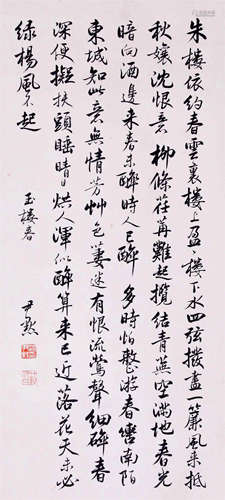 朱樓依約春雲裏樓上盈〻樓下水四弦撥盡一簾風未抵
秋孃沈恨意 柳條荏苒難起攬結青蕪空滿地春光
暗向酒邊來春未醉時人已醉 多時怕整游春轡南陌
東城知此意無情芳艸色萋迷有恨流鶯聲細碎春
深便擬扶頭睡晴日烘人渾似醉算来已近落花天未必
綠楊風不起
玉樓春
尹默